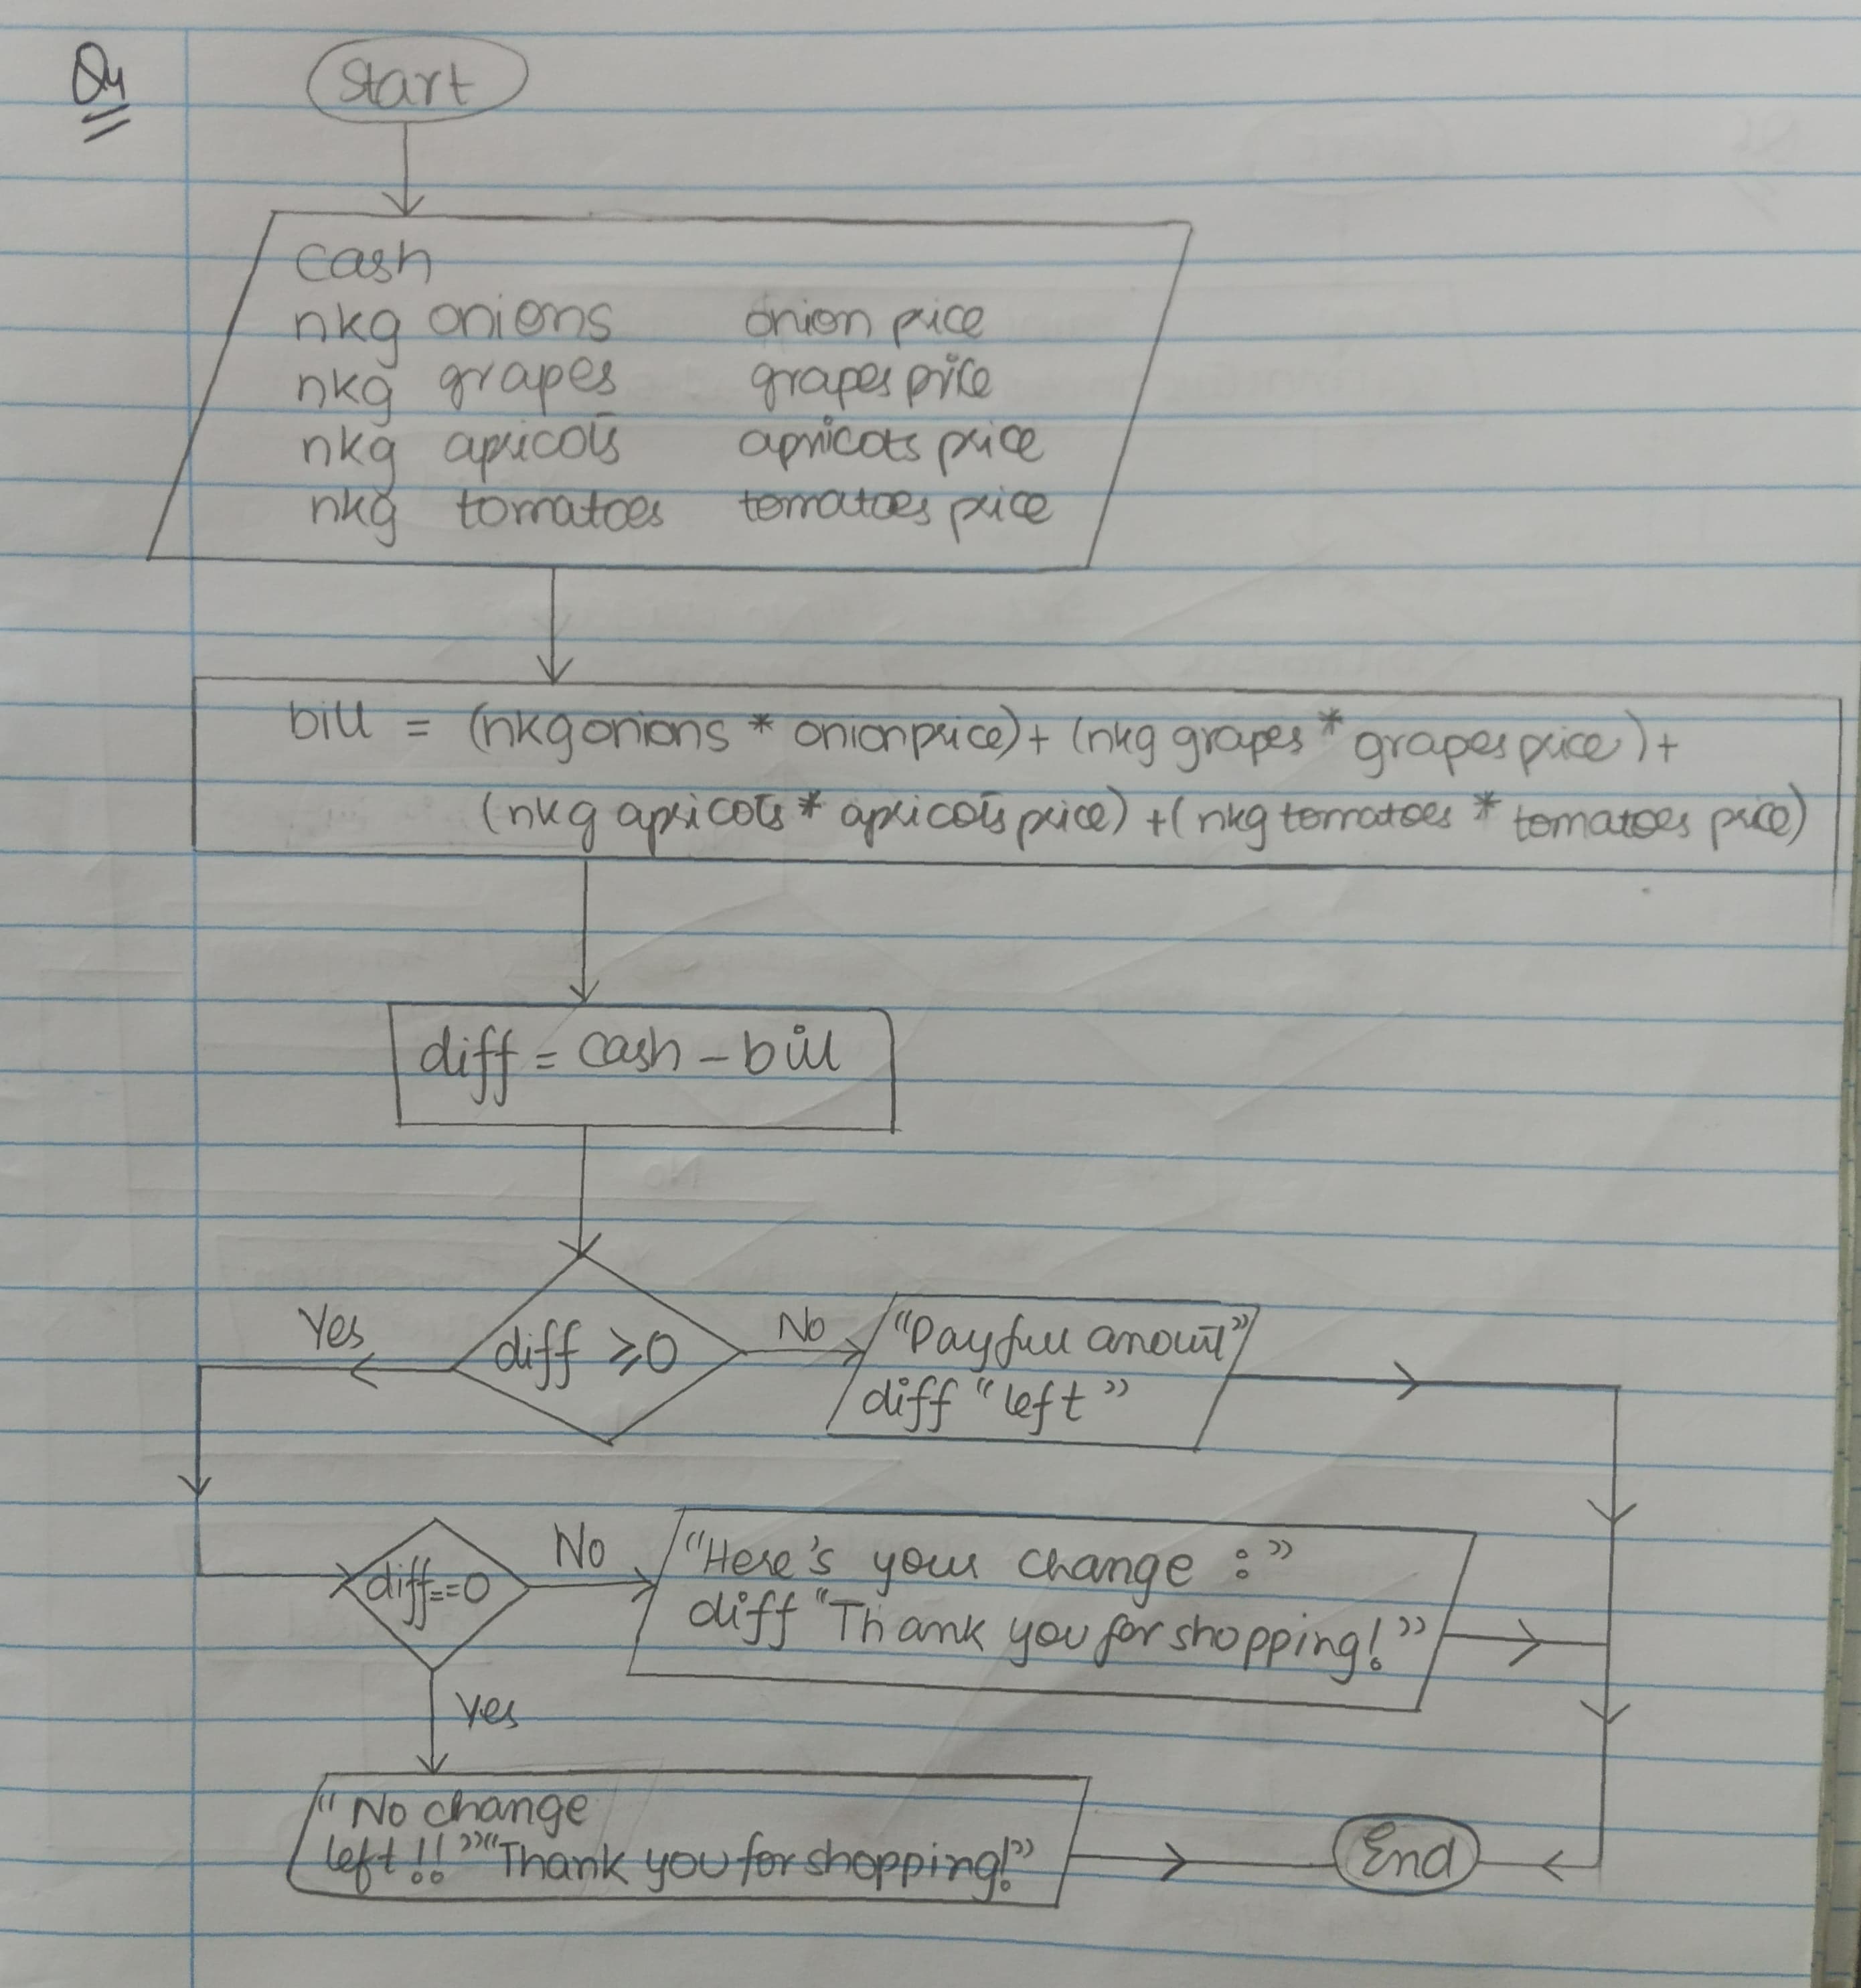 Q4
Start
cash
nkg onions onion price
nkg grapes grapes price
nkg apricots apricots price
nkg tomatoes tomatoes price
bill = (nkg onions * onion price) + (nkg grapes * grapes price) +
(nkg apricots * apricots price) + (nkg tomatoes * tomatoes price)
diff = cash - bill
diff ⩾ 0
Yes
No
"Pay full amount"
diff "left"
diff==0
No
"Here's your change :"
diff "Thank you for shopping!"
Yes
"No change
left!!" "Thank you for shopping!"
End